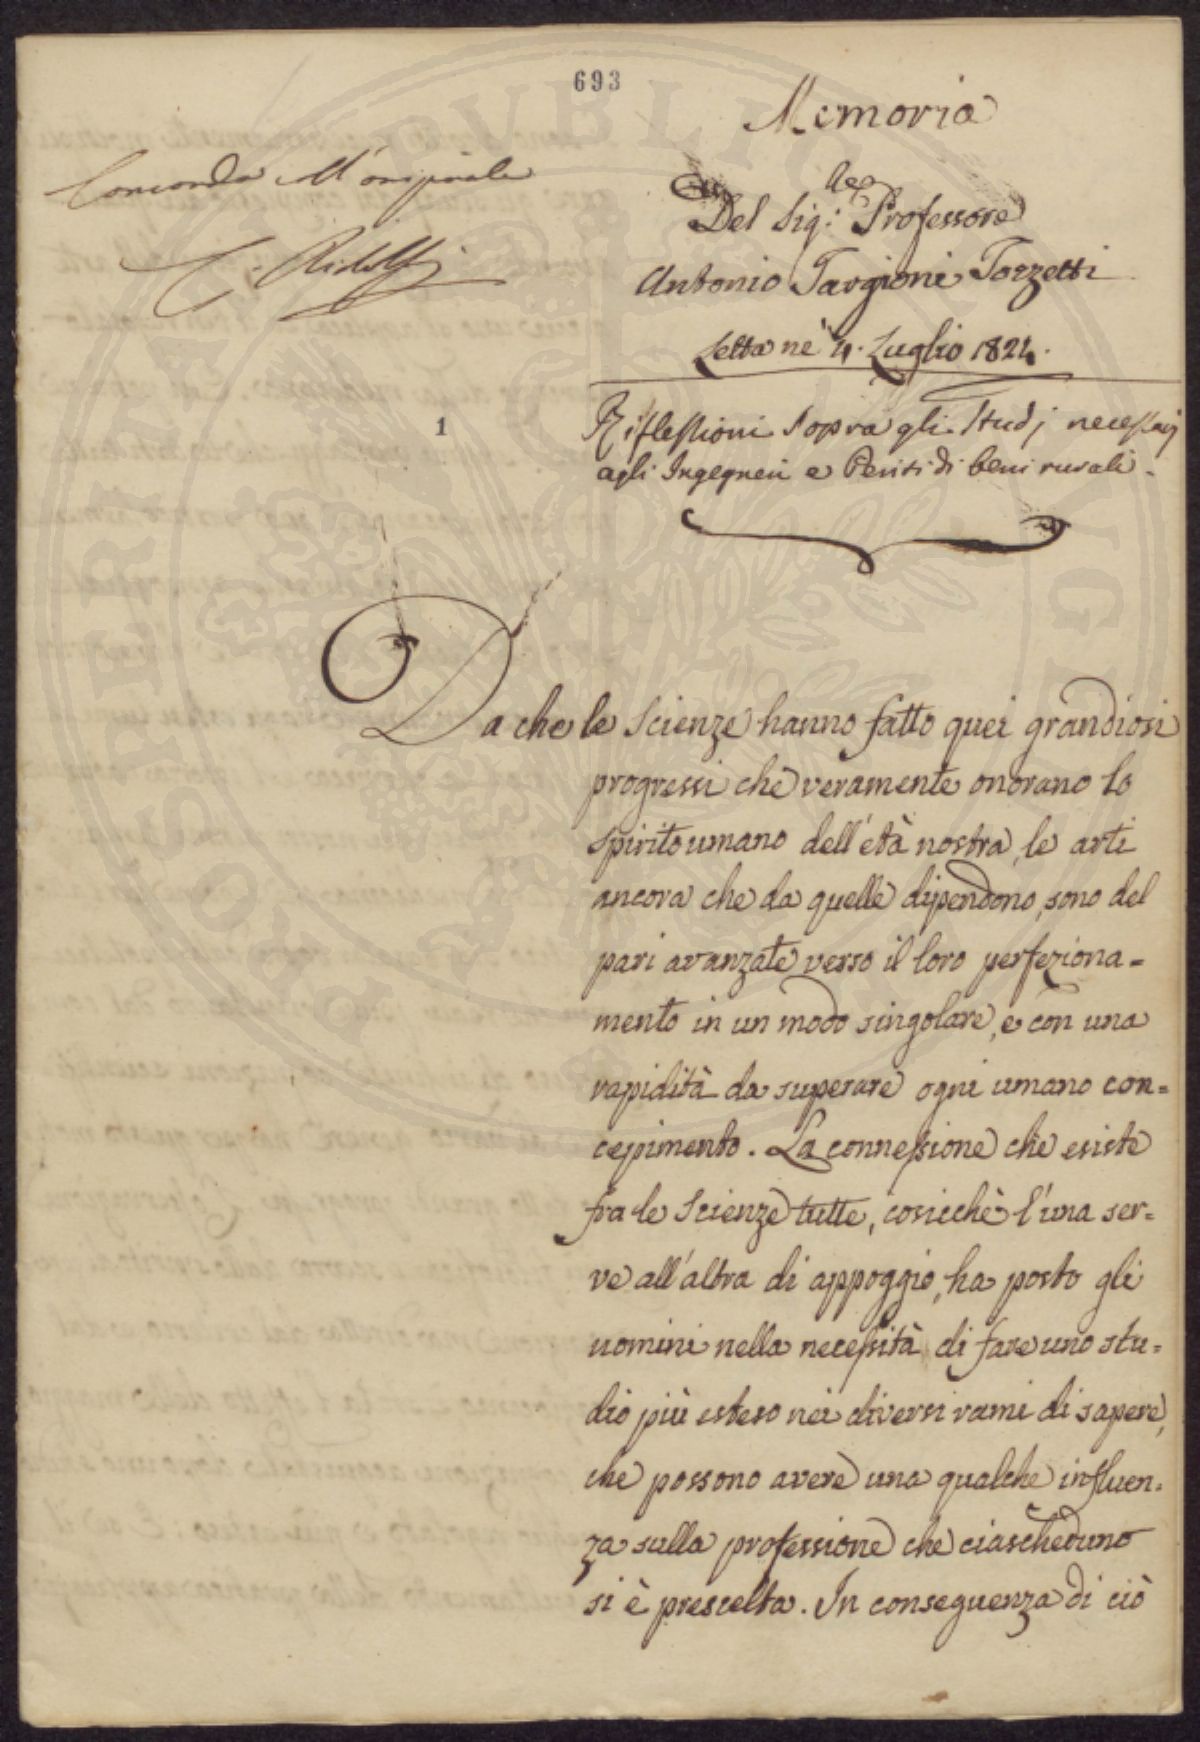 693
Memoria
Del Sig.r Professore
Antonio Targioni Tozzetti
Letta ne' 4. Luglio 1824.
Concorda all'originale
C. Ridolfi
1
Riflessioni sopra gli Studj necessarj
agli Ingegneri e Periti di beni rurali.
Da che le Scienze hanno fatto quei grandiosi
progressi che veramente onorano lo
spirito umano dell'età nostra, le arti
ancora che da quelle dipendono, sono del
pari avanzate verso il loro perfeziona=
mento in un modo singolare, e con una
rapidità da superare ogni umano con=
cepimento. La connessione che esiste
fra le Scienze tutte, cosicchè l'una ser=
ve all'altra di appoggio, ha posto gli
uomini nella necessità di fare uno stu=
dio più esteso nei diversi rami di sapere,
che possono avere una qualche influen=
za sulla professione che ciascheduno
si è prescelta. In conseguenza di ciò